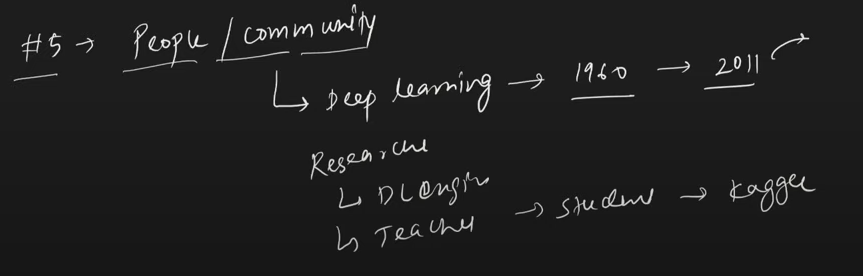 #5 → People / community
↳ Deep learning → 1960 → 2011
Researche
↳ DL Engin
↳ Teacher → student → Kaggle